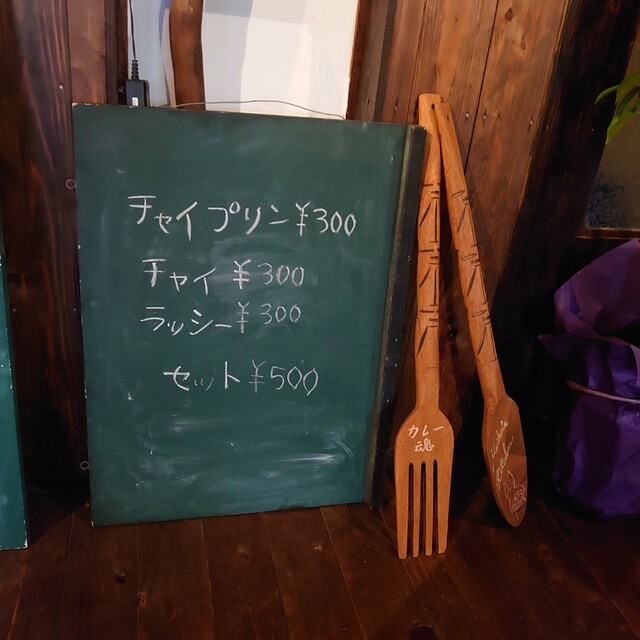 チャイプリン ¥300
チャイ ¥300
ラッシー ¥300
セット ¥500
カレー
魂